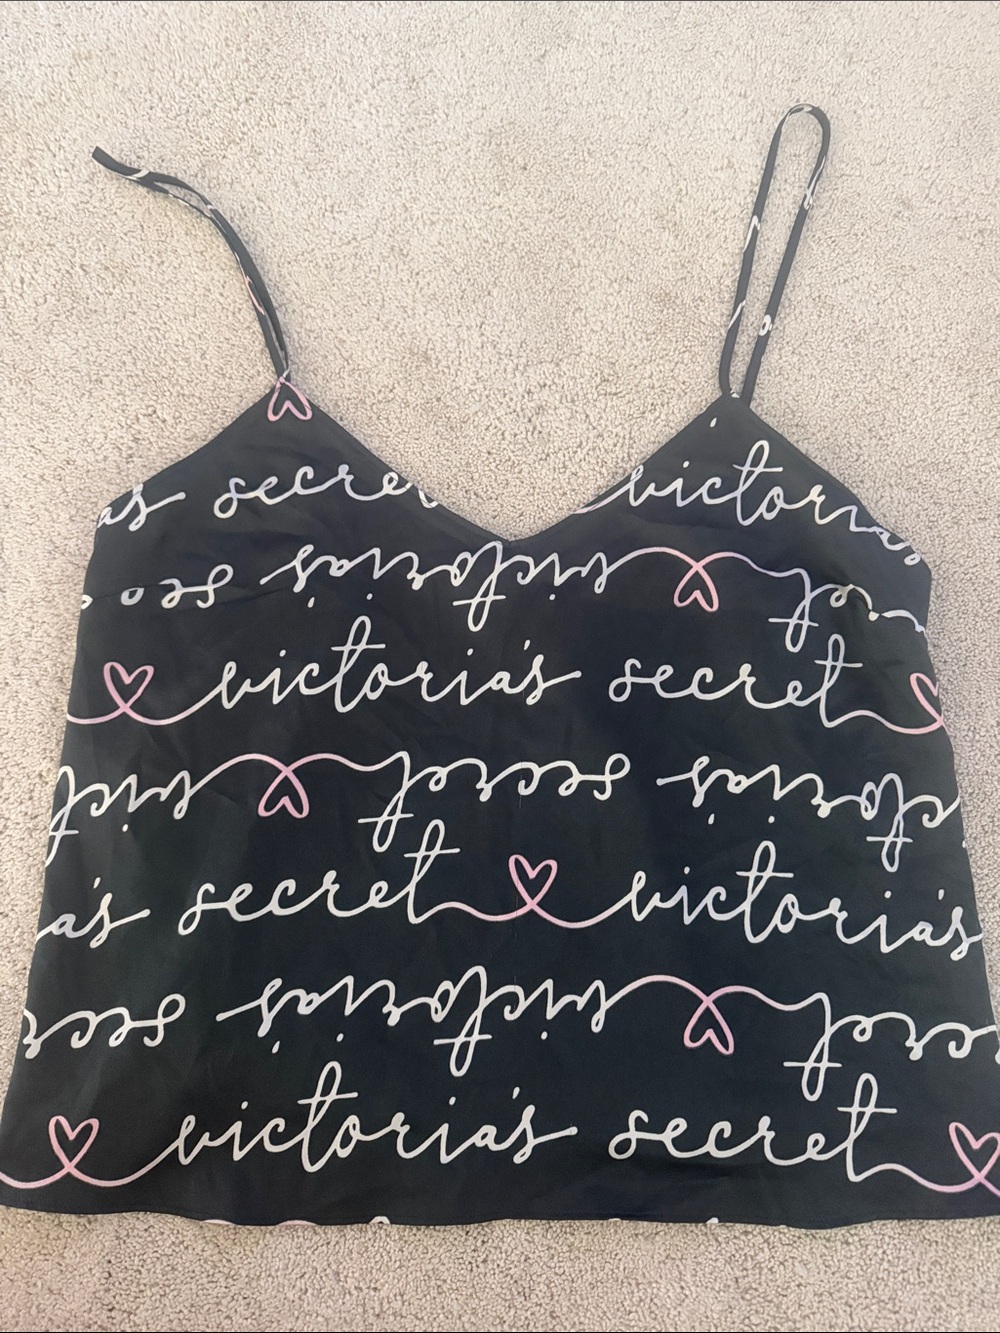 as secret victorias
victoria's sec ret
victoria's secret
victoria's secret vic
a's secret victoria's
victoria's secr cret
victoria's secret